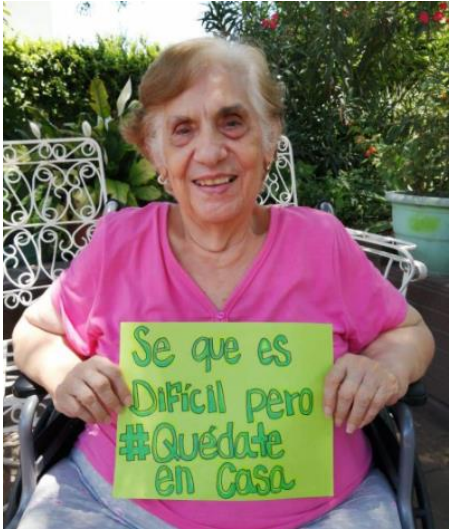 Se que es
Difícil pero
#Quédate
en Casa